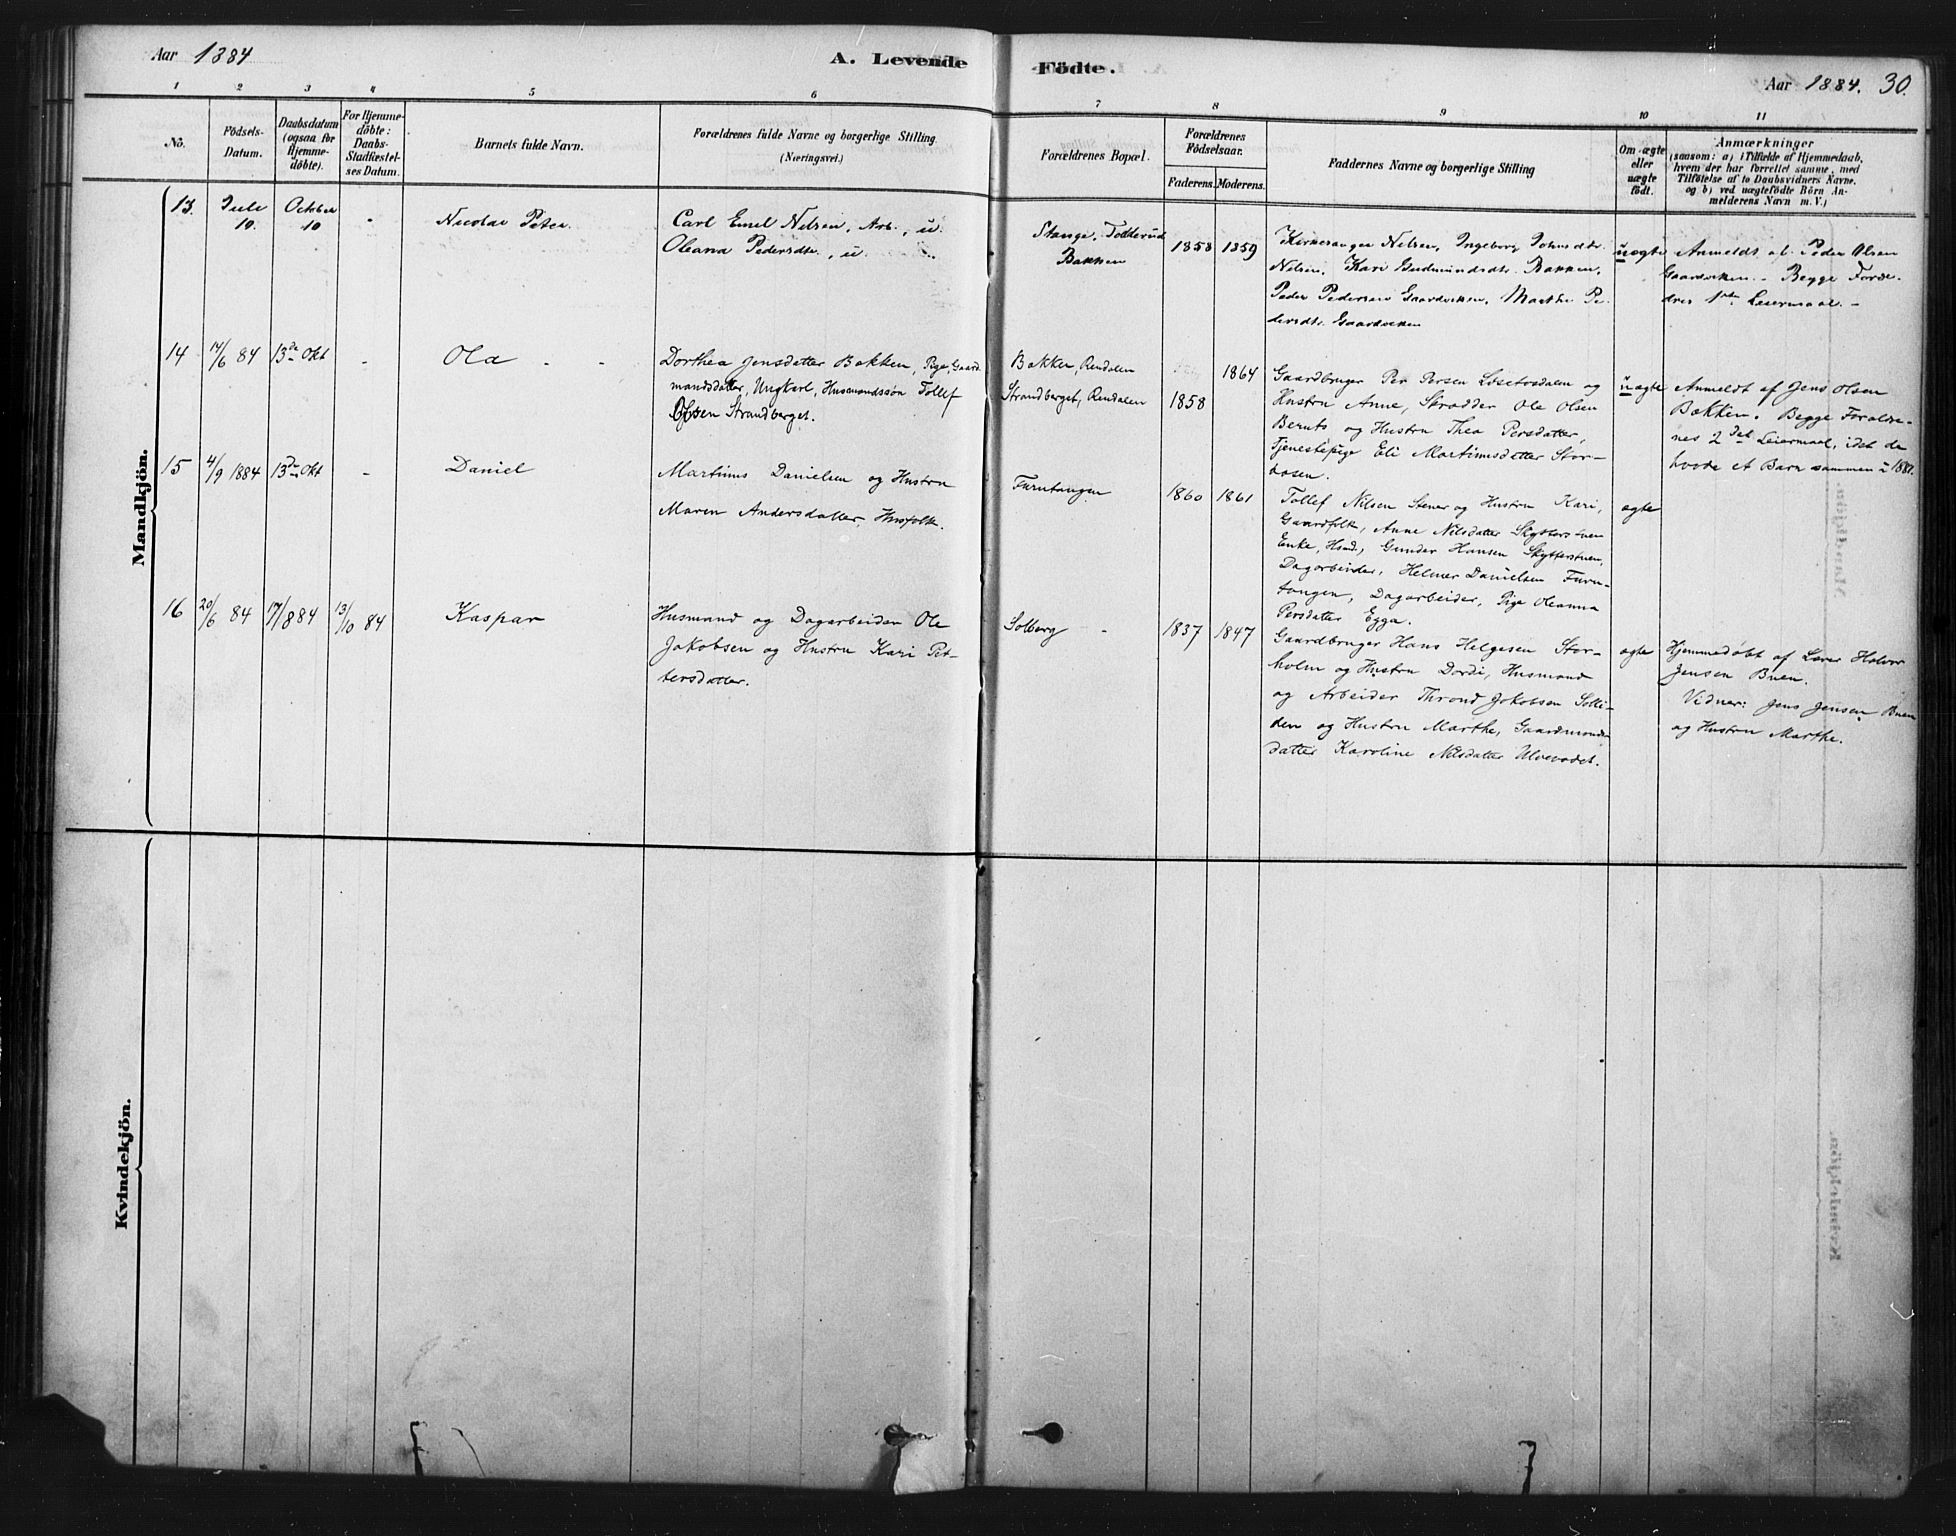 Aar 1884
A. Levende Födte.
Aar 1884. 30.
1 2 3 4 5 6 7 8 9 10 11
No.
Födsels-
Datum.
Daabsdatum
(ogsaa för
Hjemme-
döbte).
For Hjemme-
döbte:
Daabs-
Stadfæstel-
ses Datum.
Barnets fulde Navn.
Forældrenes fulde Navne og borgerlige Stilling
(Næringsvei.)
Forældrenes Bopæl.
Forældrenes
Födselsaar.
Faderens. Moderens.
Faddernes Navne og borgerlige Stilling
Om ægte
eller
uægte
födt.
Anmærkninger
(saasom: a) i Tilfælde af Hjemmedaab,
hvem der har forrettet samme, med
Tilföielse af to Daabsvidners Navne,
og b) ved uægtefödte Börn An-
melderens Navn m. V.)
Mandkjön.
13. Juli 10. October 10 - Nicolai Peter.
Carl Emil Nilsen, Arb., u.
Oleana Pedersdtr., u.
Stange, Todderud
Bakken
1858 1859
Kirkesanger Nilsen, Ingeborg Johnsdtr.
Nilsen, Kari Gudmundsdtr. Bakken,
Peder Pedersen Gaardviken, Marthe Pe-
dersdtr. Gaardviken
uægte
Anmeldt af Peder Olsen
Gaardviken. - Begge Foræl-
dres 1ste Leiermaal. -
14 14/6 84 13de Okt - Ola
Dorthea Jensdatter Bakken, Pige, Gaard-
mandsdatter, Ungkarl, Husmandssøn Tollef
Olsen Strandberget.
Bakken, Rendalen
Strandberget, Rendalen
1858 1864
Gaardbruger Per Persen Løsetosdalen og
Hustru Anne, Skrædder Ole Olsen
Bernts og Hustru Thea Persdatter,
Tjenestepige Eli Martinusdatter Stor-
hosen.
uægte
Anmeldt af Jens Olsen
Bakken. Begge Forældre-
nes 2det Leiermaal, idet de
havde et Barn sammen i 1881.
15 4/9 1884 13de Okt - Daniel
Martinus Danielsen og Hustru
Maren Andersdatter, Husfolk.
Furutangen
1860 1861
Tollef Nilsen Stener og Hustru Kari,
Gaardfolk, Anne Nilsdatter Skytterstuen
Enke, Hsmd., Gunder Hansen Skytterstuen,
Dagarbeider, Helmer Danielsen Furu-
tangen, Dagarbeider, Pige Oleanna
Persdatter Egga.
ægte
16 20/6 84 17/8 84 13/10 84 Kaspar
Husmand og Dagarbeider Ole
Jakobsen og Hustru Kari Pet-
tersdatter.
Solberg
1837 1847
Gaardbruger Hans Helgesen Stor-
holm og Hustru Dordi, Husmand
og Arbeider Thrond Jakobsen Solli-
den og Hustru Marthe, Gaardmands-
datter Karoline Nilsdatter Ulvevadet.
ægte
Hjemmedøbt af Lærer Halvor
Jensen Buen.
Vidner: Jens Jensen Buen
og Hustru Marthe.
Kvindekjön.